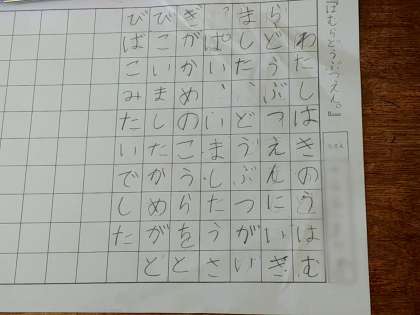 「はむらどうぶつえん。」
わたしはきのうはむ
らどうぶつえんにいぎ
ました、どうぶつがい
っぱい、いました。うさ
ぎがかめのこうらをと
びこいましたかめがど
びばこみたいでした